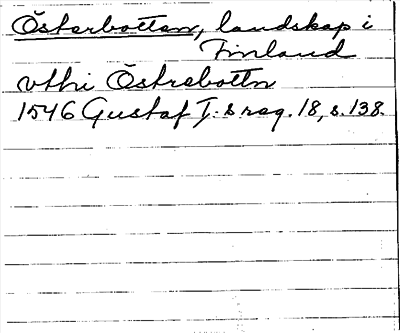 Österbotten, landskap i
Finland
vthi Östrebottn
1546 Gustaf I:s reg. 18, s. 138.